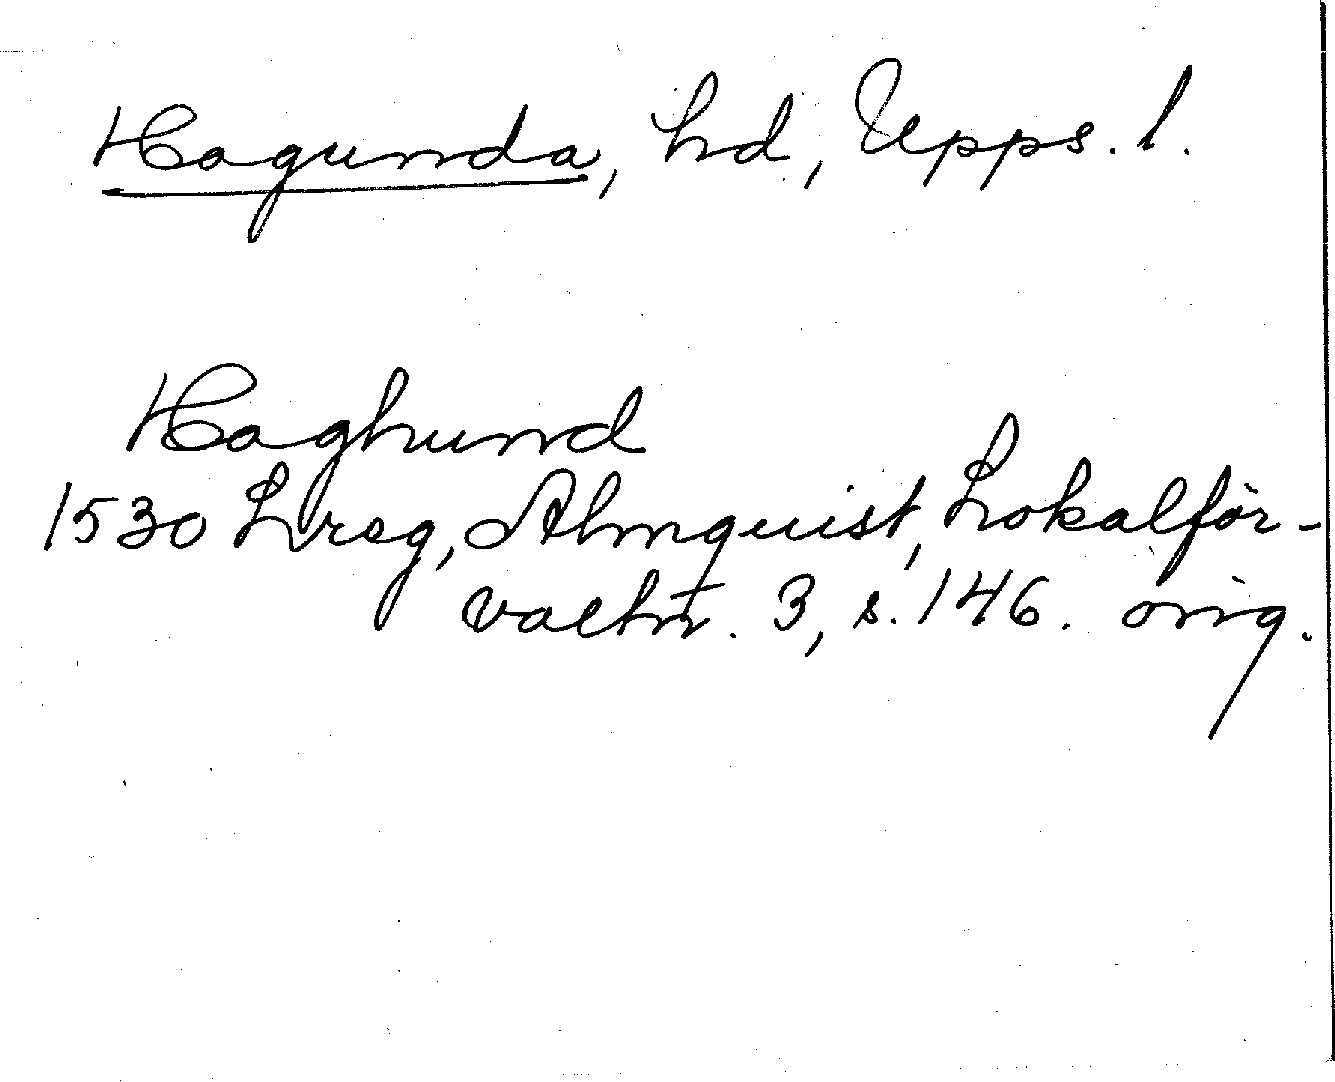 Hagunda, hd, Upps. l.
Haghund
1530 Lreg, Almquist, Lokalför-
valtn. 3, s. 146. orig.